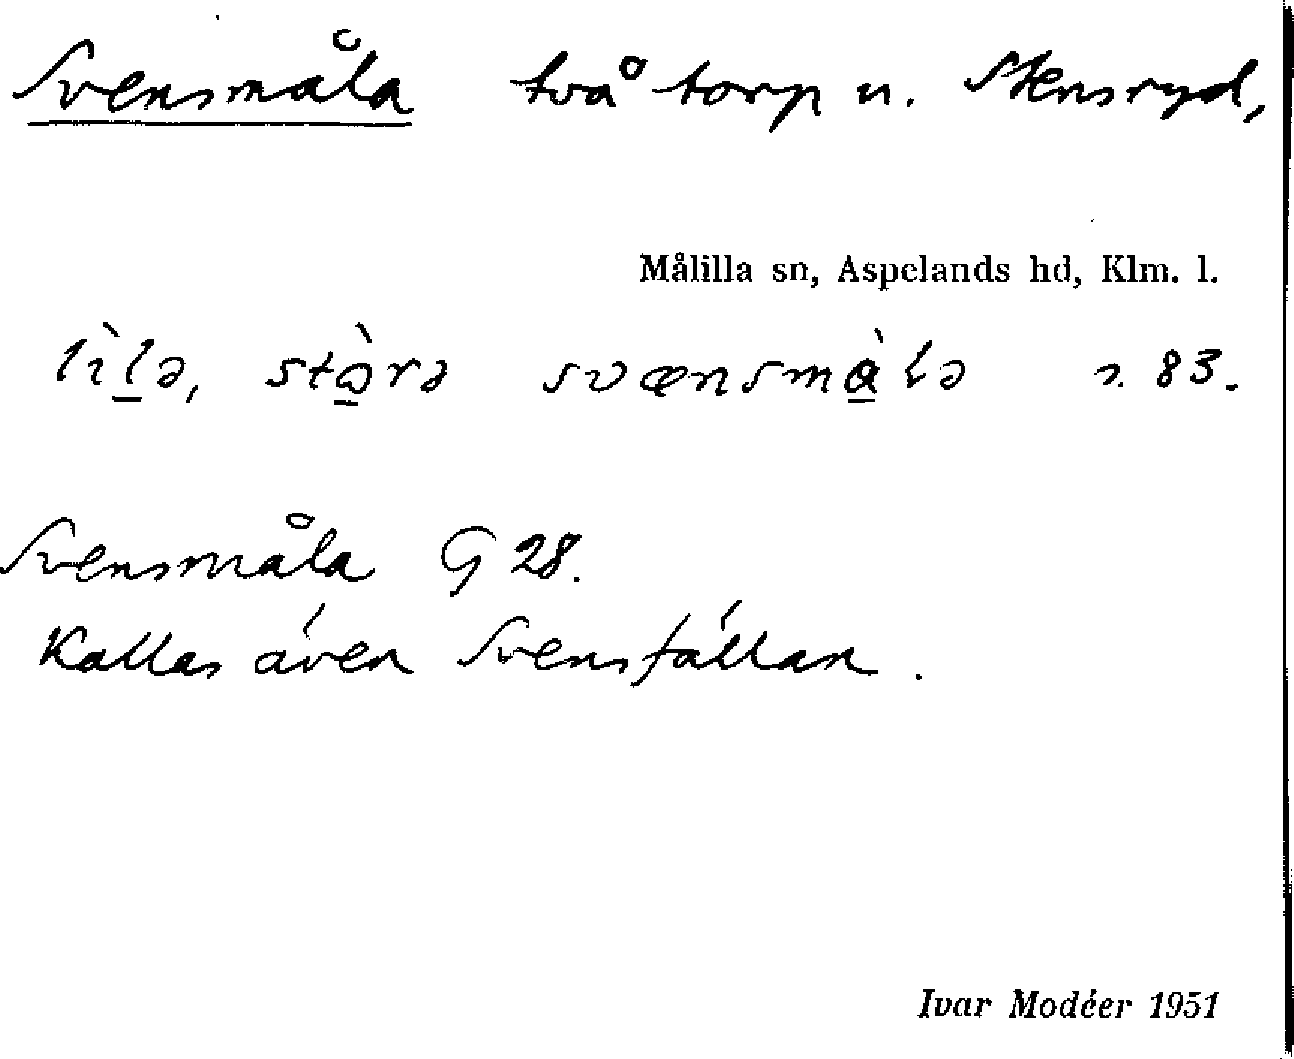 Svensmåla två torp u. Stensryd,
Målilla sn, Aspelands hd, Klm. l.
lìl̲ə, stò̲rə svænsmà̲lə s. 83.
Svensmåla G 28.
Kallas även Svensfällan.
Ivar Modéer 1951